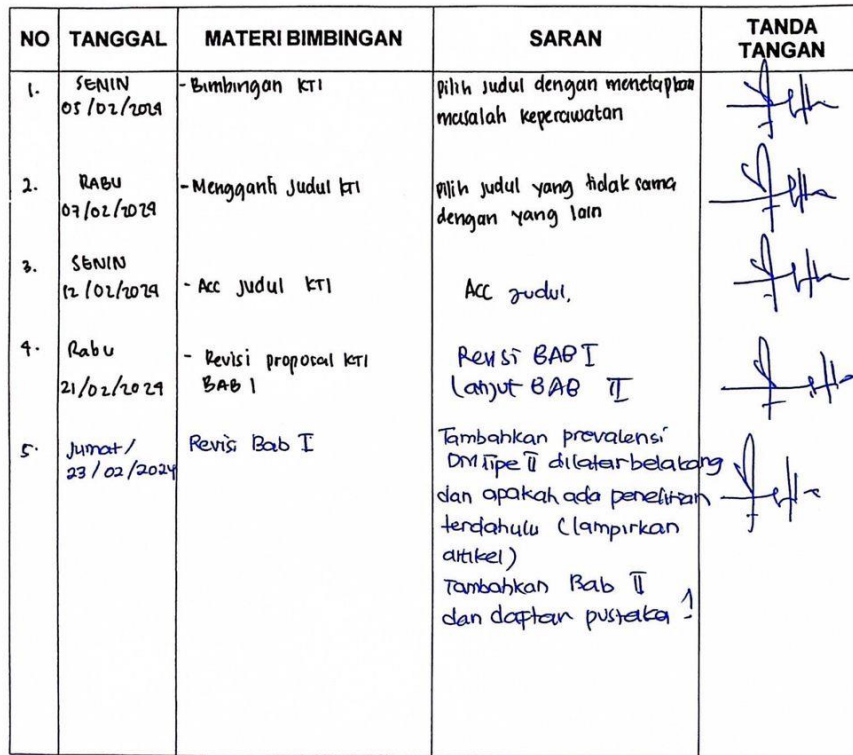 NO TANGGAL MATERI BIMBINGAN SARAN TANDA TANGAN
1. SENIN - Bimbingan KTI pilih judul dengan menetapkan
05/02/2024 masalah keperawatan
2. RABU - Mengganti Judul KTI pilih judul yang tidak sama
07/02/2024 dengan yang lain
3. SENIN
12/02/2024 - Acc Judul KTI Acc judul,
4. Rabu - Revisi proposal KTI Revisi BAB I
21/02/2024 BAB 1 Lanjut BAB II
5. Jumat/ Revisi Bab I Tambahkan prevalensi
23/02/2024 DM Tipe II dilatar belakang
dan apakah ada penelitian
terdahulu (lampirkan
artikel)
Tambahkan Bab II
dan daftar pustaka !